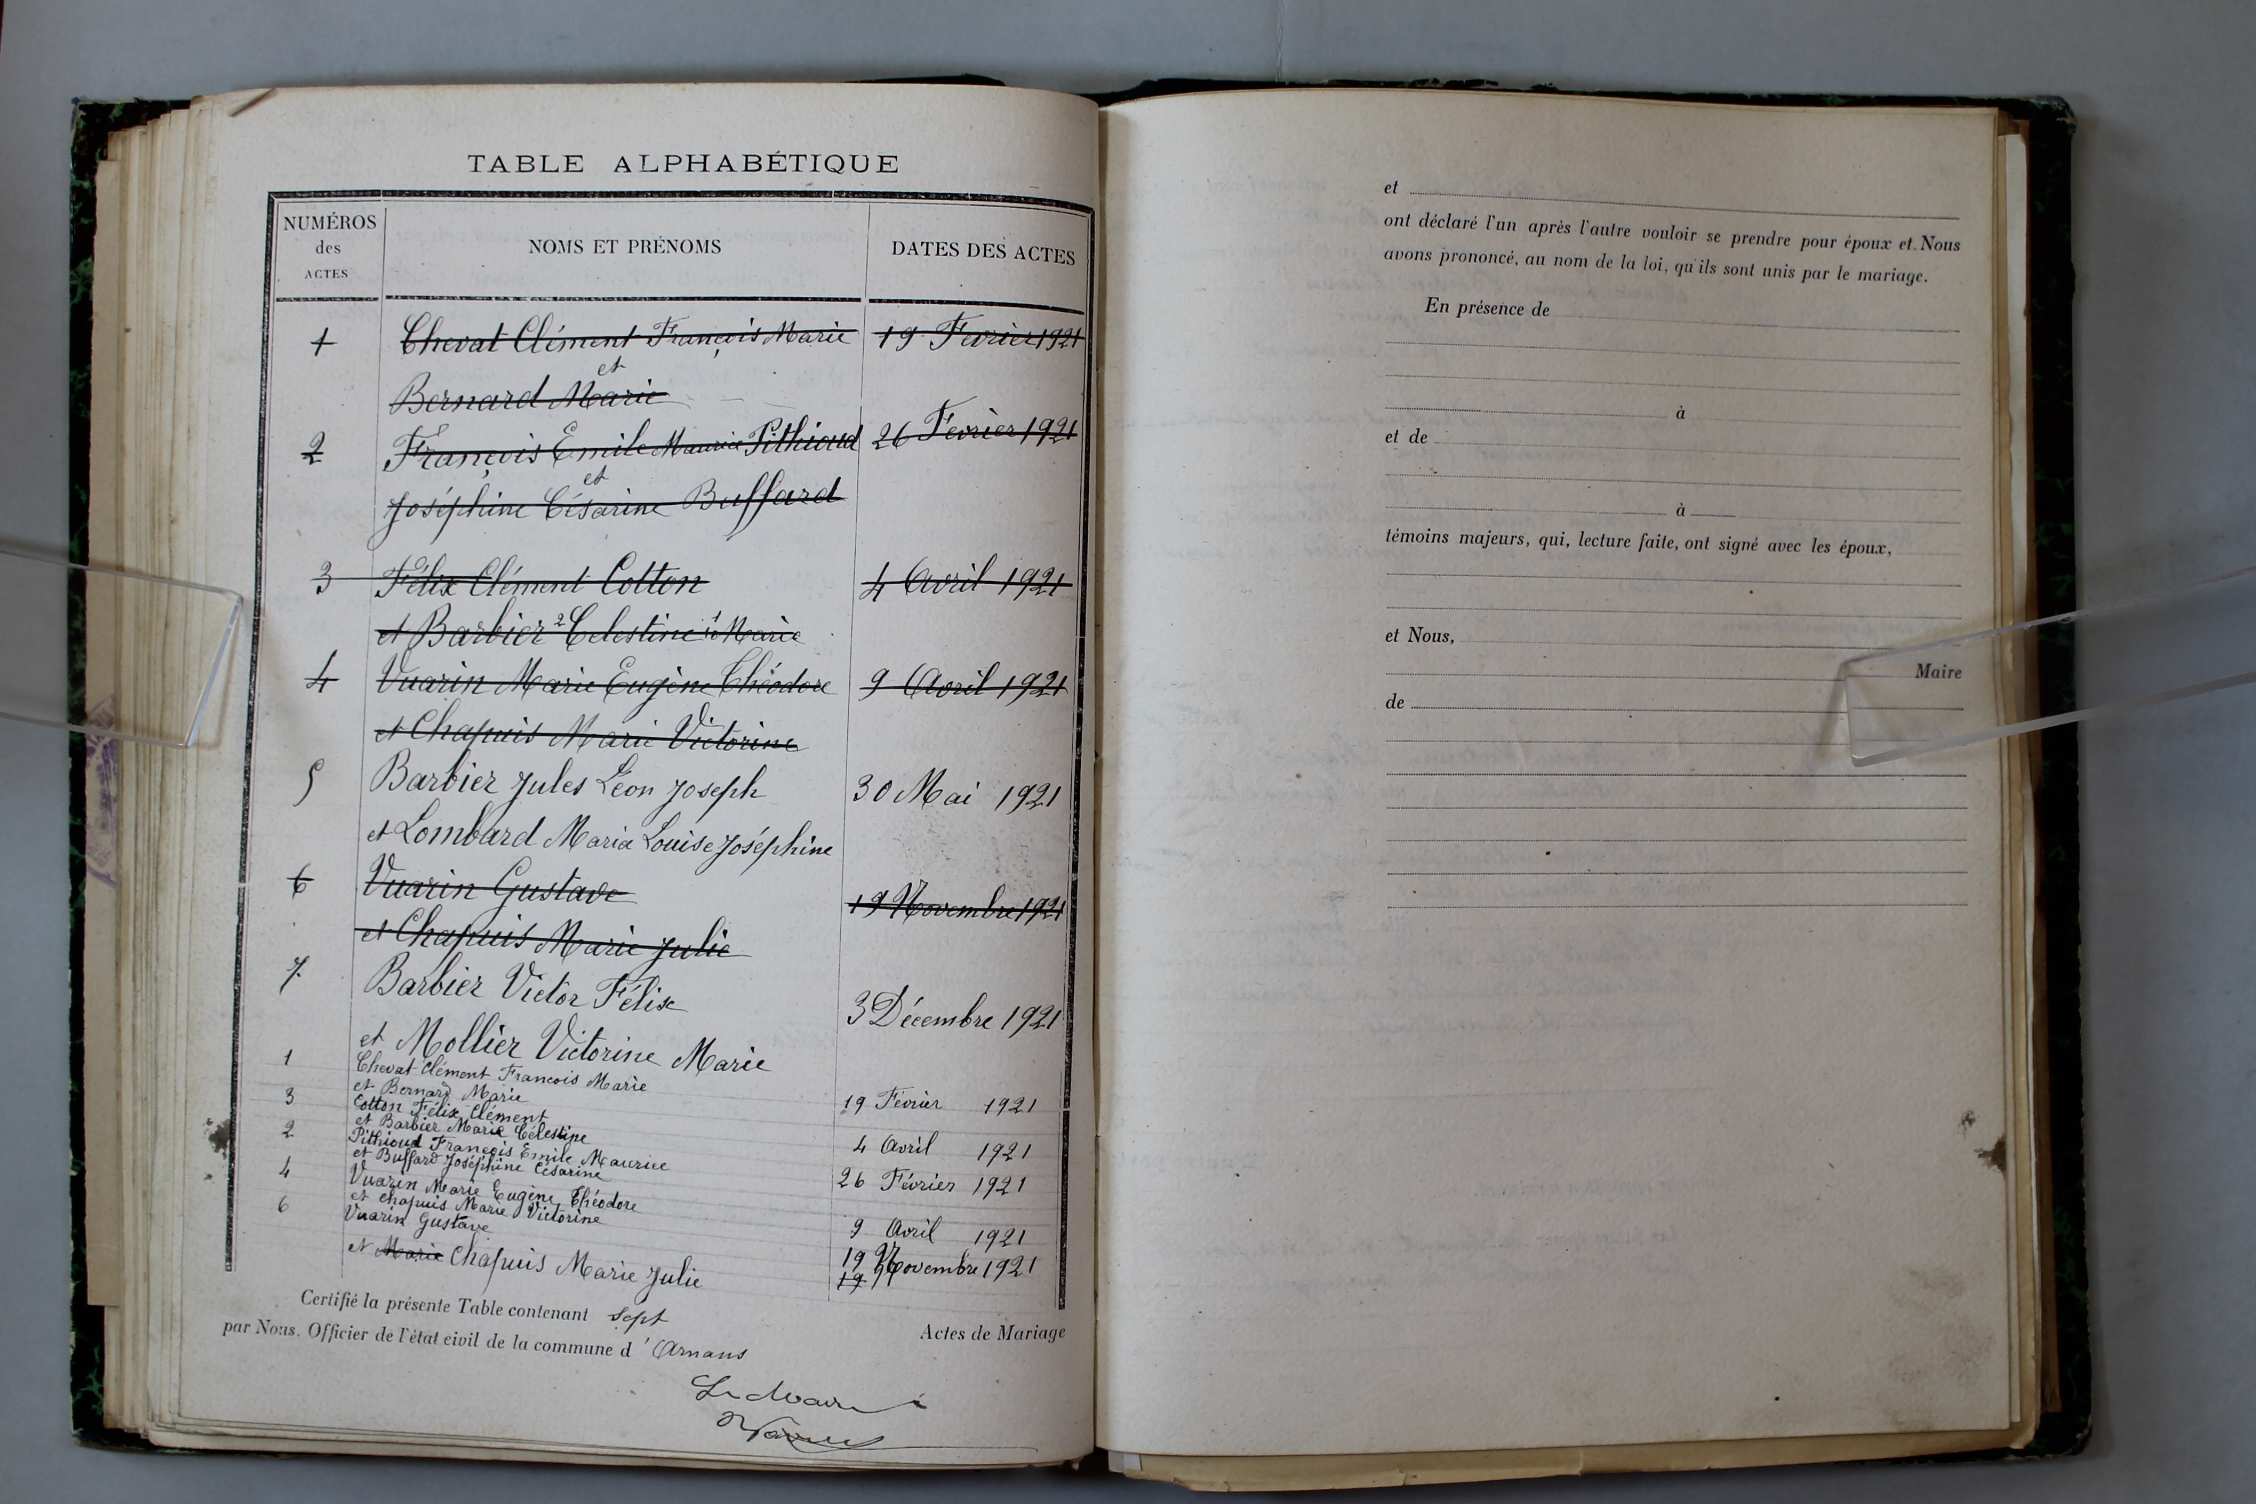 TABLE ALPHABÉTIQUE
NUMÉROS
des
ACTES
NOMS ET PRÉNOMS
DATES DES ACTES
1 Chevat Clément François Marie 19 Fevrier 1921
et
Bernard Marie
2 François Emile Maurice Pithioud 26 Fevrier 1921
et
Joséphine Césarine Buffard
3 Félix Clément Cotton 4 Avril 1921
et Barbier 2 Celestine 1 Marie
4 Vuarin Marie Eugène Théodore 9 Avril 1921
et Chapuis Marie Victorine
5 Barbier Jules Léon Joseph 30 Mai 1921
et Lombard Maria Louise Joséphine
6 Vuarin Gustave 19 Novembre 1921
et Chapuis Marie Julie
7. Barbier Victor Félix
3 Décembre 1921
et Mollier Victorine Marie
1 Chevat Clément Francois Marie
et Bernard Marie 19 Février 1921
3 Cotton Félix Clément
et Barbier Marie Célestine 4 Avril 1921
2 Pithioud François Emile Maurice
et Buffard Joséphine Césarine 26 Février 1921
4 Vuarin Marie Eugène Théodore
et Chapuis Marie Victorine 9 Avril 1921
6 Vuarin Gustave
19 Novembre 1921
et Marie Chapuis Marie Julie 19
Certifié la présente Table contenant sept Actes de Mariage
par Nous, Officier de l'état civil de la commune d'Arnans
Le Maire
et
ont déclaré l'un après l'autre vouloir se prendre pour époux et Nous
avons prononcé, au nom de la loi, qu'ils sont unis par le mariage.
En présence de
à
et de
à
témoins majeurs, qui, lecture faite, ont signé avec les époux,
et Nous,
Maire
de